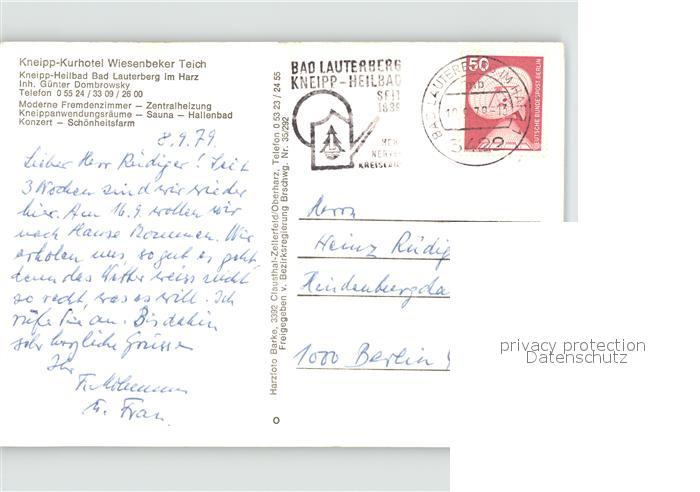 Kneipp-Kurhotel Wiesenbeker Teich
Kneipp-Heilbad Bad Lauterberg im Harz
Inh. Günter Dombrowsky
Telefon 0 55 24 / 33 09 / 26 00
Moderne Fremdenzimmer – Zentralheizung
Kneippanwendungsräume – Sauna – Hallenbad
Konzert – Schönheitsfarm
8.9.79.
Lieber Herr Rüdiger! Seit
3 Wochen sind wir wieder
hier. Am 16.9. wollen wir
nach Hause kommen. Wir
erholen uns, so gut es geht,
denn das Wetter weiss nicht
so recht, was es will. Ich
rufe Sie an. Bis dahin
sehr herzliche Grüsse
Ihr
u. Frau.
Harzfoto Barke, 3392 Clausthal-Zellerfeld/Oberharz, Telefon 0 53 23 / 24 55
Freigegeben v. Bezirksregierung Brschwg. Nr. 35/292
BAD LAUTERBERG
KNEIPP-HEILBAD
SEIT
1839
HERZ
NERVEN
KREISLAUF
BAD LAUTERBERG IM HARZ
3422
50
DEUTSCHE BUNDESPOST BERLIN
Herrn
Heinz Rüdig
Hindenburgda
1000 Berlin
privacy protection
Datenschutz